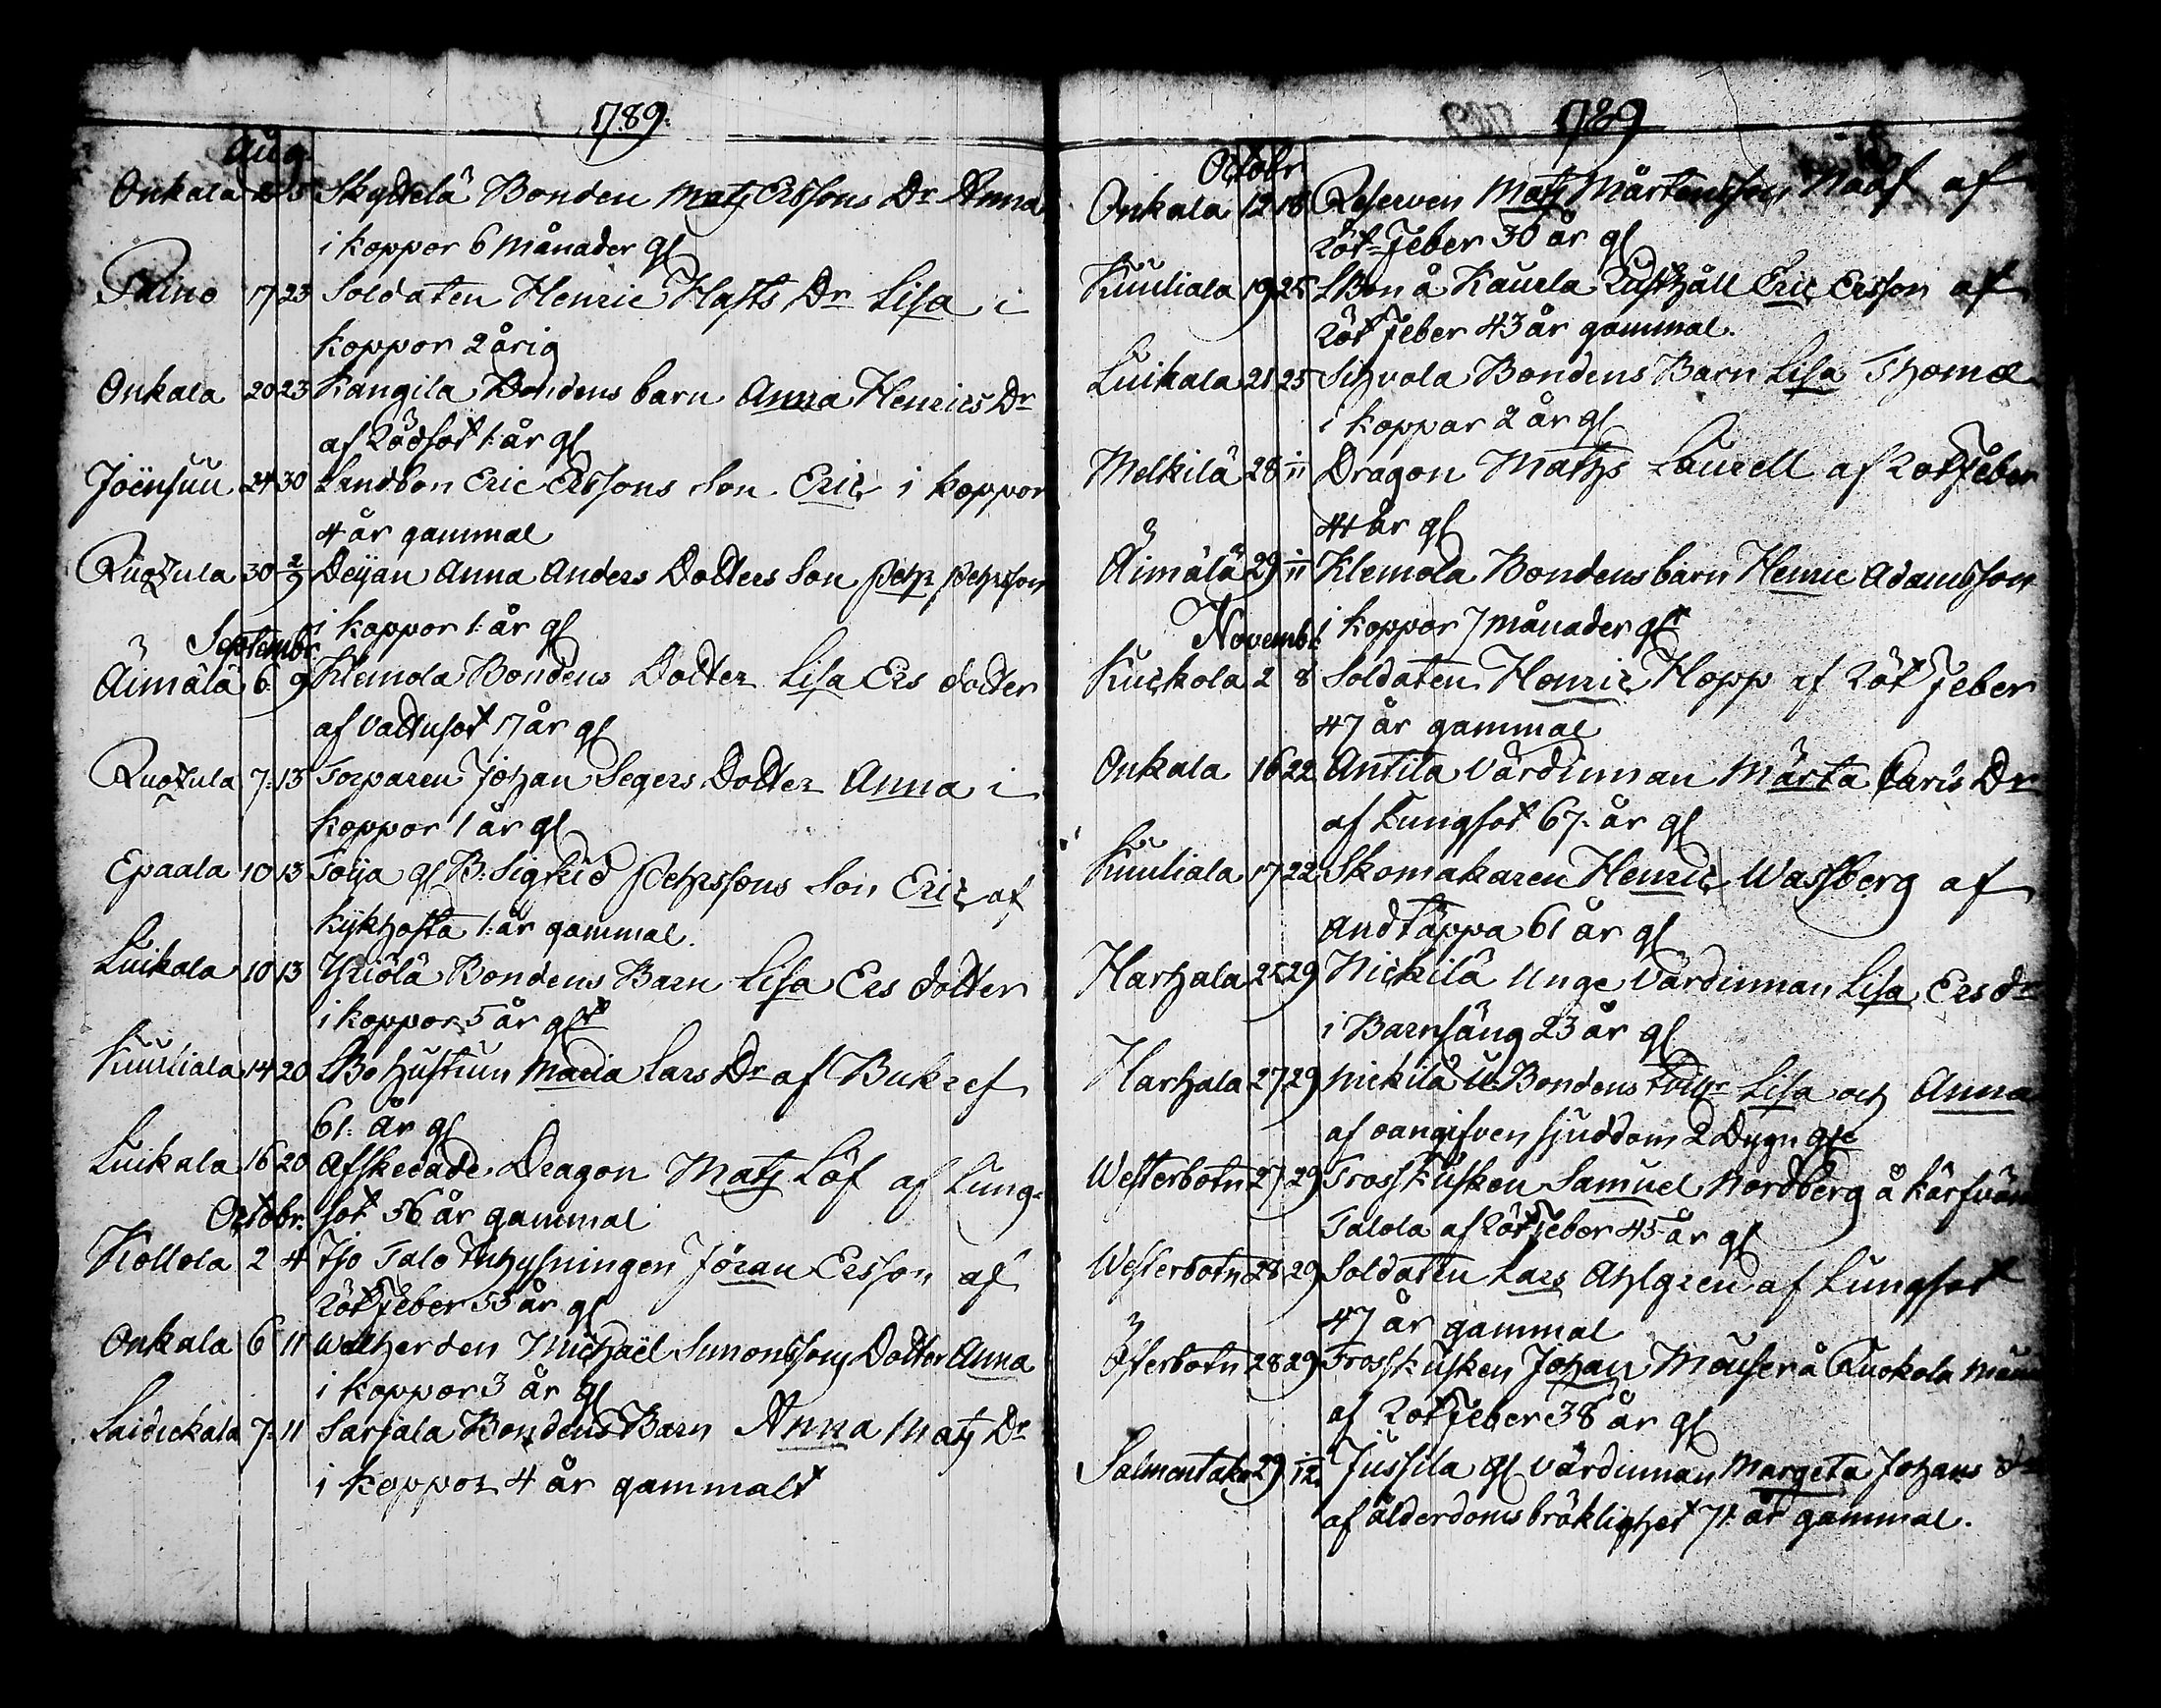 1789.
Aug.
Onkala Skyttelä Bonden Matz Erssons Dr Anna
i koppor 6 månader gl
17 23 Soldaten Henric Hafts Dr Lisa i
koppor 2 årig
Onkala 20 23 Kangila Bondens barn Anna Henrics Dr
af Rödsot 1: år gl
Joensuu 24 30 Landbon Eric Erssons Son Eric i koppor
4 år gammal
30 2/9 Deijan Anna Anders Dotters Son Pehr Pehrsson
i koppor 1: år gl
Septembr
Äimälä 6 9 Klemola Bondens Dotter Lisa Ers dotter
af Vattusot 17 år gl
7: 13 Torparen Johan Segers Dotter Anna i
koppor 1 år gl
Epaala 10 13 Toija gl B: Sigfrid Pehrssons Son Eric af
kikhosta 1: år gammal.
Luikala 10 13 Yriölä Bondens Barn Lisa Ers dotter
i koppor 5 år glt
Kuuliala 14 20 LBo hustrun Maria Lars Dr af Bukref
61: år gl
Luikala 16 20 Afskedade Dragon Matz Löf af Lung-
sot 56 år gammal
Octobr.
Kollola 2 4 Iso Talo Inhysningen Jöran Ersson af
Rötfeber 55 år gl
Onkala 6 11 Wallherden Michaël Simonssons Dotter Anna
i koppor 3 år gl
Laidickala 7: 11 Sarjala Bondens Barn Anna Matz Dr
i koppor 4 år gammalt
1789
Octobr
Onkala 12 18 Reserven Matz Mårtensson af
Röt-Feber 30 år gl
Kuuliala 19 25 LBon å Kaurla Rusthåll Eric Ersson af
Röt Feber 43 år gammal.
Luikala 21 25 Sihvola Bondens Barn Lisa Thomæ
i koppar 2 år gl
Melkilä 28 1/11 Dragon Mathz Laurell af Rotfeber
44 år gl
Äimälä 29 1/11 Klemola Bondens barn Henric Adamsson
i koppor 7 månader glt
Novembr
Kurkola 2 8 Soldaten Henric Hopp af Röt Feber
47 år gammal
Onkala 16 22 Antila Värdinnan Märta Carls Dr
af Lungsot 67: år gl
Kuuliala 17 22 Skomakaren Henric Wassberg af
andtäppa 61 år gl
Harhala 25 29 Nickilä Unge Värdinnan Lisa Ers dr
i Barnsäng 23 år gl
Harhala 27 29 Nickilä U: Bondens Lisa och Anna
af oangifven sjuddom 2 Dygn gle
Westerbotn 27 29 Trosskusken Samuel Nordberg å
Talola af Rötfeber 45 år gl
Westerbotn 28 29 Soldaten Lars Ahlgren af Lungsot
47 år gammal
Österbotn 28 29 Trosskusken Johan Mouser å Ruokola
af Rotfeber 38 år gl
Salmentaka 29 1/12 Jussila gl värdinnan Margeta Johans dr
af ålderdoms bräklighet 71: år gammal.